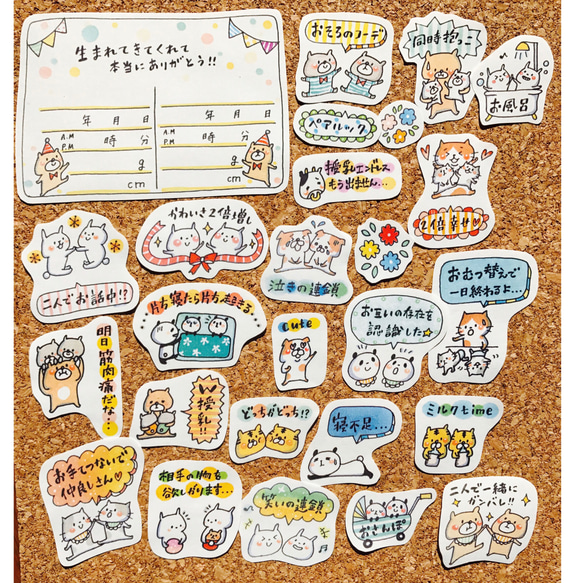 生まれてきてくれて
本当にありがとう!!
年 月 日
年 月 日
A.M
P.M
時 分
A.M
P.M
時 分
g
g
cm
cm
おそろのコーデ
同時抱っこ
お風呂
ペアルック
授乳エンドレス
もう出ません…
2倍幸せ
かわいさ2倍増し
二人でお話中!?
泣きの連鎖
おむつ替えで
一日終わるよ…
片方寝たら片方起きる
お互いの存在を
認識した
cute
明日筋肉痛だな…
W授乳!!
どっちがどっち!?
寝不足…
ミルクtime
お手てつないで
仲良しさん♡
相手の物を
欲しがります…
笑いの連鎖
おさんぽ
二人で一緒に
ガンバレ!!